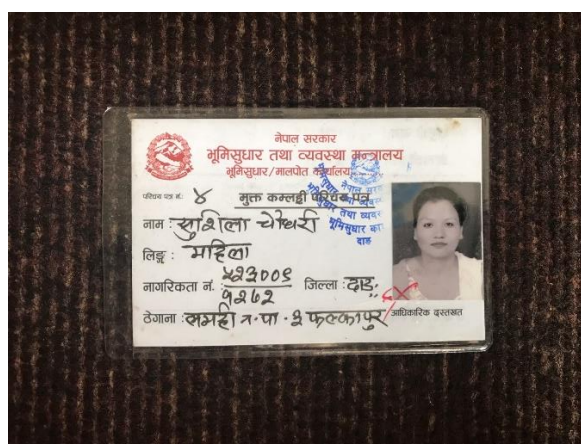 नेपाल सरकार
भूमिसुधार तथा व्यवस्था मन्त्रालय
भूमिसुधार/मालपोत कार्यालय
परिचय पत्र नं.: ४ मुक्त कम्लहरी परिचय पत्र
नाम : सुशिला चौधरी
लिङ्ग : महिला
नागरिकता नं. : ५२३००९ जिल्ला : दाङ
९२७२
ठेगाना : लमही न.पा. ३ फल्कापुर
आधिकारिक दस्तखत
नेपाल
भूमिसुधार
दाङ